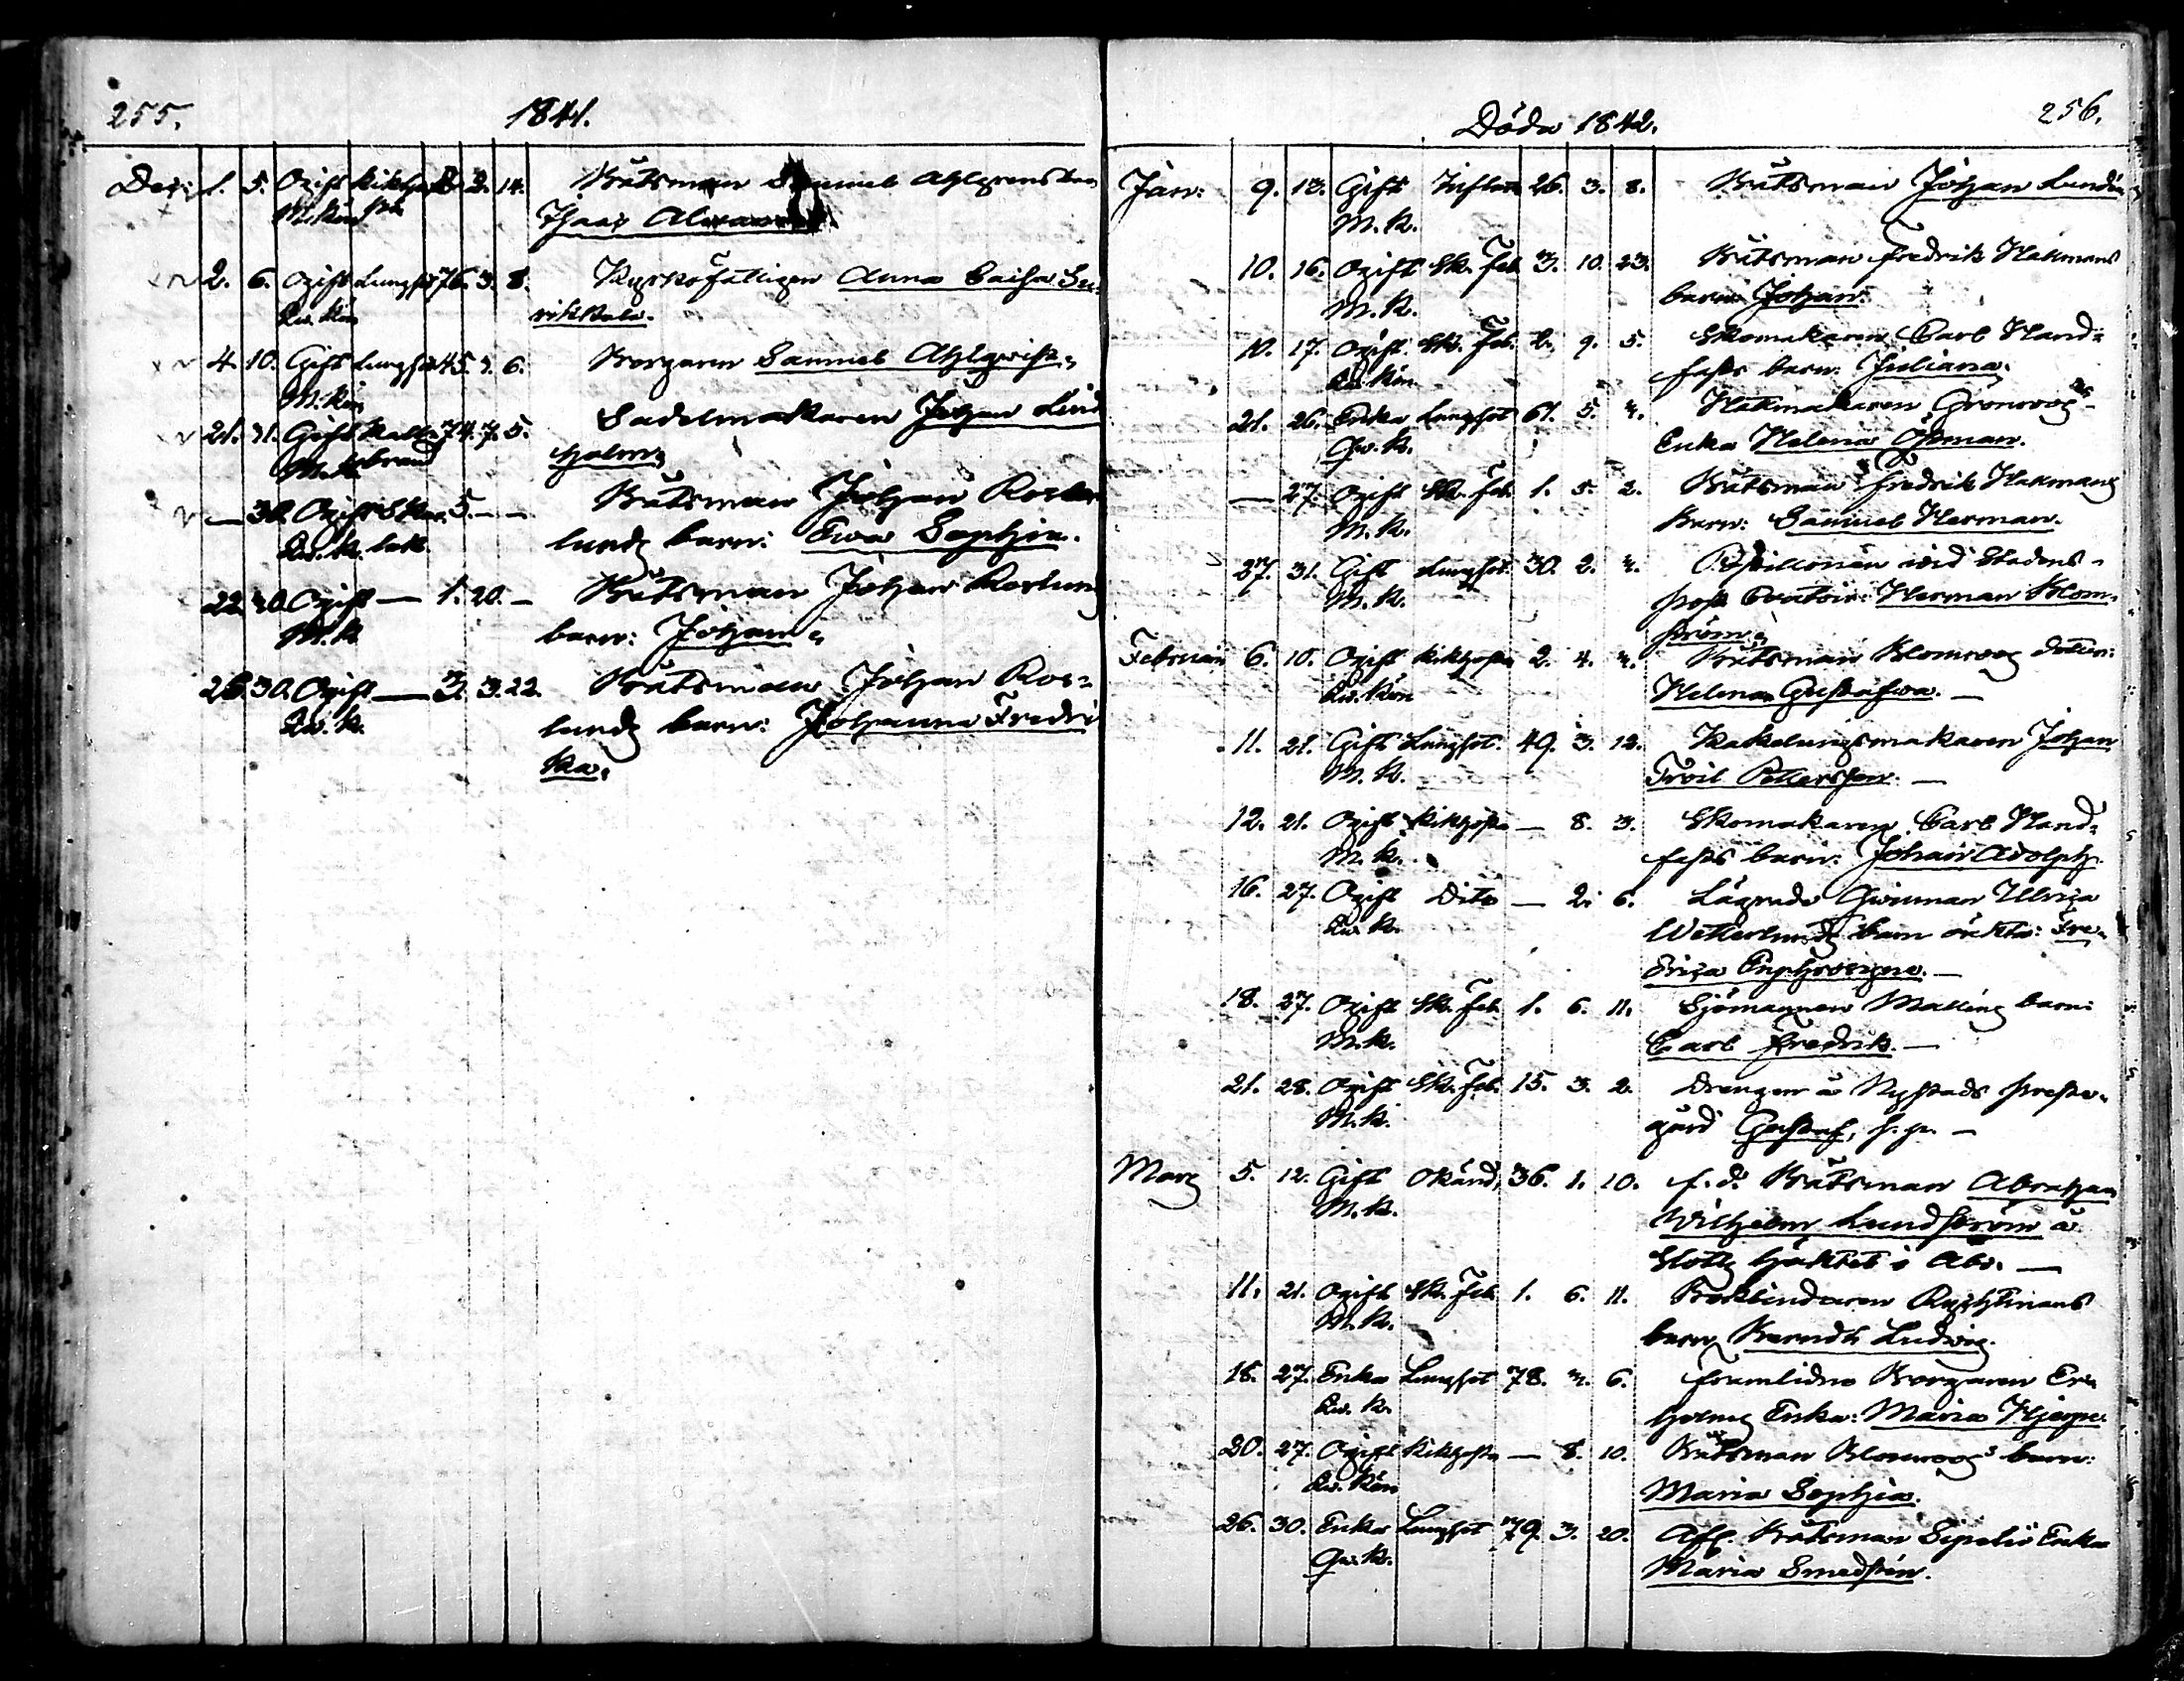 255.
1841.
Dec: 1. 5. Ogift Kikho- 2. 14. Båtsman Samuel Ahlgrens barn
M. Kön sta Isaac
2. 6. Ogift Lungsot 76. 3. 8. Kyrkofattigen Anna Caisa
Kw. Kön
4. 10. Gift Lungsot 45. 6. Borgaren Samuel Ahlqwist.
M. Kön
21. 31. Gift Kall- 74. 7. 5. Sadelmakaren Johan Lind
M. K. brand holm
— 30. Ogift 5. — — Båtsman Johan Ros
Kw. K. lunds barn: Ewa Sophia.
22. 30. Ogift — 1. 20. — Båtsman Johan Roslunds
M. K. barn: Johan
26. 30. Ogift — 3. 3. 22. Båtsman Johan Ros-
Kw. K. lunds barn: Johanna Fredri
ka.
Döda 1842.
256.
Jan: 9. 13. Gift 26. 3. 8. Båtsman Johan Lundén
M. K.
10. 16. Ogift Sk. Feb. 3. 10. 23. Båtsman Fredrik Hakmans
M. K. barn Johan.
10. 17. Ogift Sk. Feb. 2. 9. 5. Skomakaren Carl Hand-
Kw. Kön fasts barn: Juliana.
21. 26. Enka Lungsot 61. 5. 4. Hattmakaren Grönroos
Qw. K. Enka Helena Östman.
— 27. Ogift Sk. Feb. 1. 5. 2. Båtsman Fredrik Hakmans
M. K. Barn: Samuel Herman.
27. 31. Gift Lungsot. 30. 2. 4. Postillionen wid Stadens
M. K. Post Contoir: Herman Blom-
ström
Februari 6. 10. Ogift Kikhosta 2. 4. 4. Båtsman Blomroos dotter:
Kw. Kön Helena Gustafwa. —
11. 21. Gift Lungsot. 49. 3. 12. Kakelungsmakaren Johan
M. K. Troil Pettersson. —
12. 21. Ogift Kikhosta — 8. 3. Skomakaren Carl Hand-
M. K. fasts barn: Johan Adolph
16. 27. Ogift Dito — 2. 6. Lägrade Qwinnan Ulrica
Kw. K. Wetterlunds barn oäkta: Fre-
drica Euphrosyne. —
18. 27. Ogift Sk. Feb. 1. 6. 11. Sjömannen Mallins barn:
M. K. Carl Fredrik. —
21. 28. Ogift Sk. Feb. 15. 3. 2. Drengen å Nystads Preste-
M. K. gård Gustaf, —
Mars 5. 12. Gift Okänd, 36. 1. 10. f. d. Båtsman Abraham
M. K. Wilhelm Lundström å
Slotts häktet i Abo. —
11. 21. Ogift Sk. Feb. 1. 6. 11. Bokbindaren
M. K. barn Berndt Ludvig.
18. 27. Enka Lungsot 78. 4. 6. framlidne Borgaren
Kw. K. holms Enka: Maria Hjerpe.
20. 27. Ogift Kikhosta — 8. 10. Båtsman Blomroos barn:
Kw. Kön Maria Sophia.
26. 30. Enka Lungsot 79. 3. 20. Afl. Båtsman Enka
Qw. K. Maria Smedsten.